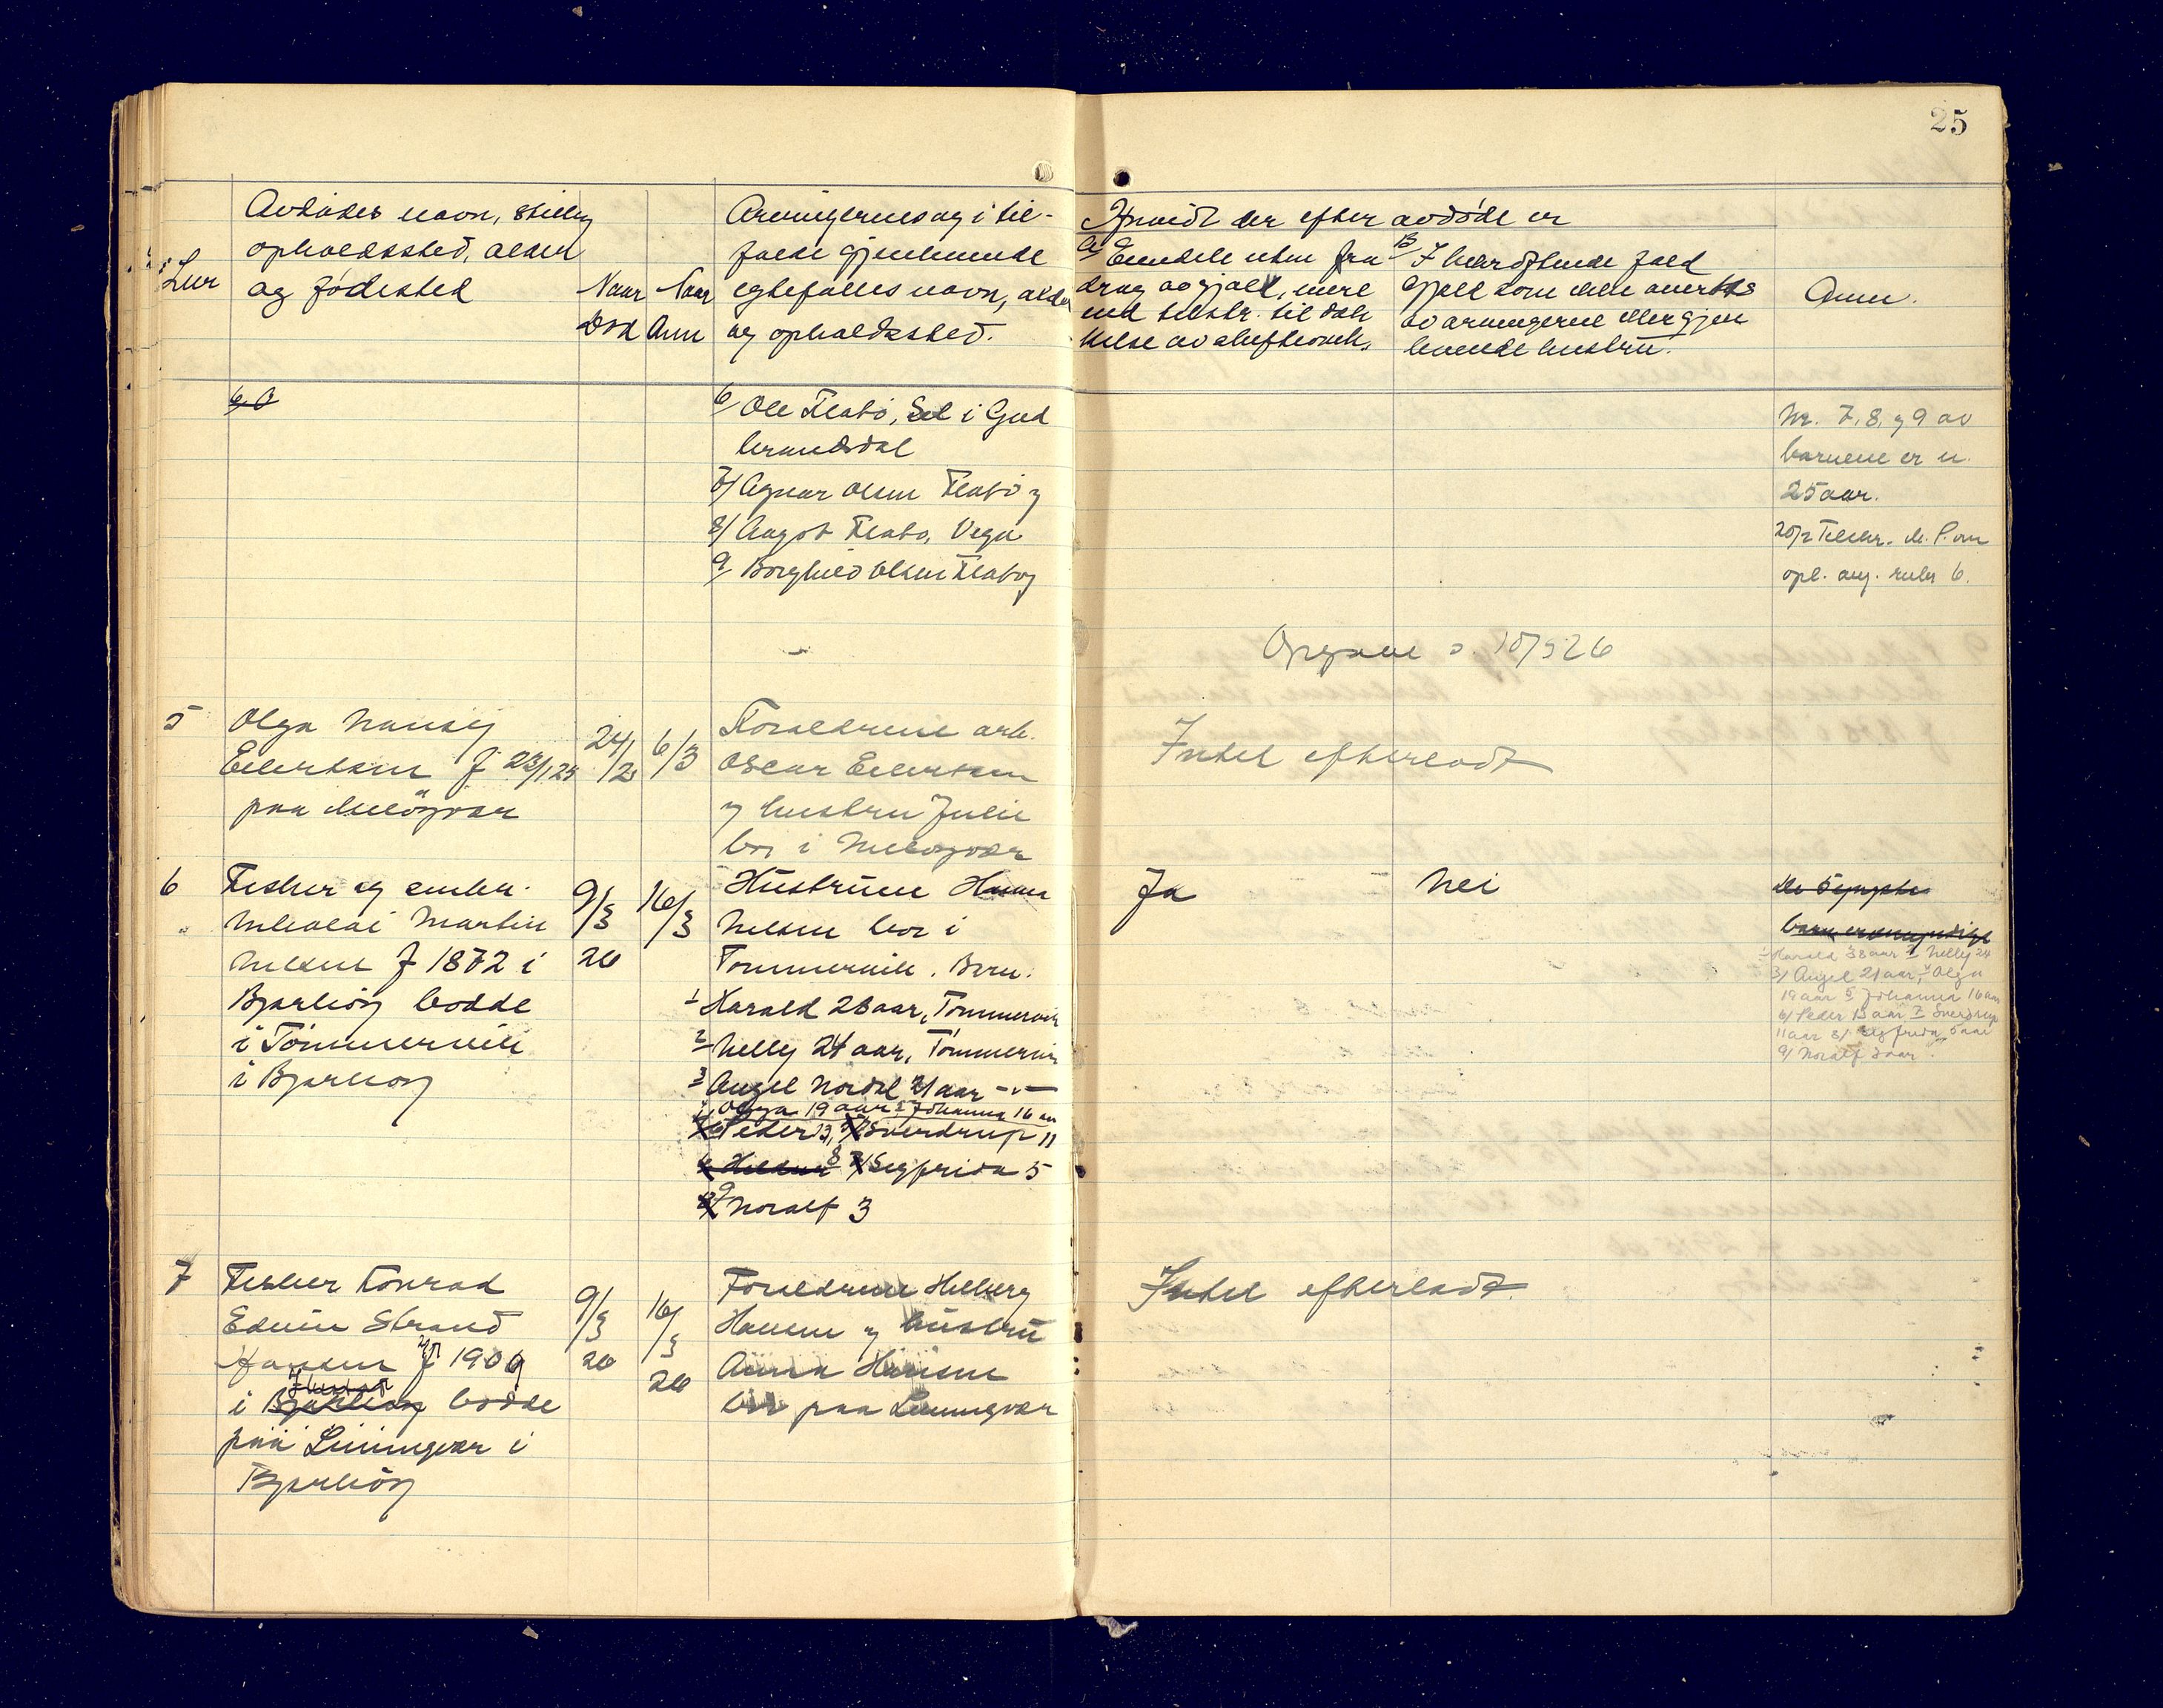 25
Avdødes navn, stilling
opholdssted, alder
og fødested
Naar
Død
Naar
Anm
Arvingernes og i til-
fælde gjenlevende
egtefælles navn, alder
og opholdssted.
Hvorvidt der efter avdøde er
A/ Eiendele uten fra
drag av gjæld, mere
end tilstr. til dæk
kelse av
B/ I bekræftende fald
gjæld som ikke
av arvingerne eller gjen
levende hustru.
Anm.
6/ Ole Flatø, Sel i Gud
brandsdal
7/ Agnar Olsen Flatø og
8/ Aagot Flatø, Vega
9/ Borghild Olsen Flatøy
Nr. 7, 8, og 9 av
barnene er u.
25 aar.
opl. ang. rubr 6.
5
Olga Nansij
Eilertsen f 23/1 25
paa
24/1
6/3
Forældrene arb.
Oscar Eilertsen
og hustru Julie
bor i
Intet efterladt
6
Fisker og
Nikolai Martin
Nilsen f 1872 i
Bjarkøy bodde
i Tømmervik
i Bjarkøy
9/3
26
16/3
Hustruen Hanna
Nilsen bor i
Tømmervik. Børn:
1 Harald 28 aar, Tømmervik
2 Nelly 24 aar, Tømmervik
3 Angel Nordal 21 aar -"-
Olga 19 aar 5 Johanna 16 aar
6 Peder 13, 7/ Sverdrup 11
8 Segfrida 5
9 Noralf 3
Ja
Nei
1 Harald 28 aar 2 Nelly 24
3/ Angel 21 aar, 4 Olga
19 aar 5 Johanna 16 aar
6/ Peder 13 aar 7 Sverdrup
11 aar 8/ Segfrida 5 aar
9/ Noralf 3 aar
7
Fisker Konrad
Edvin Strand
Hansen f 1909
i Bjarkøy bodde
paa Leiningvær i
Bjarkøy
9/3
26
16/3
26
Forældrene Hilberg
Hansen og hustru
Anna Hansen
bor paa Leiningvær
Intet efterladt